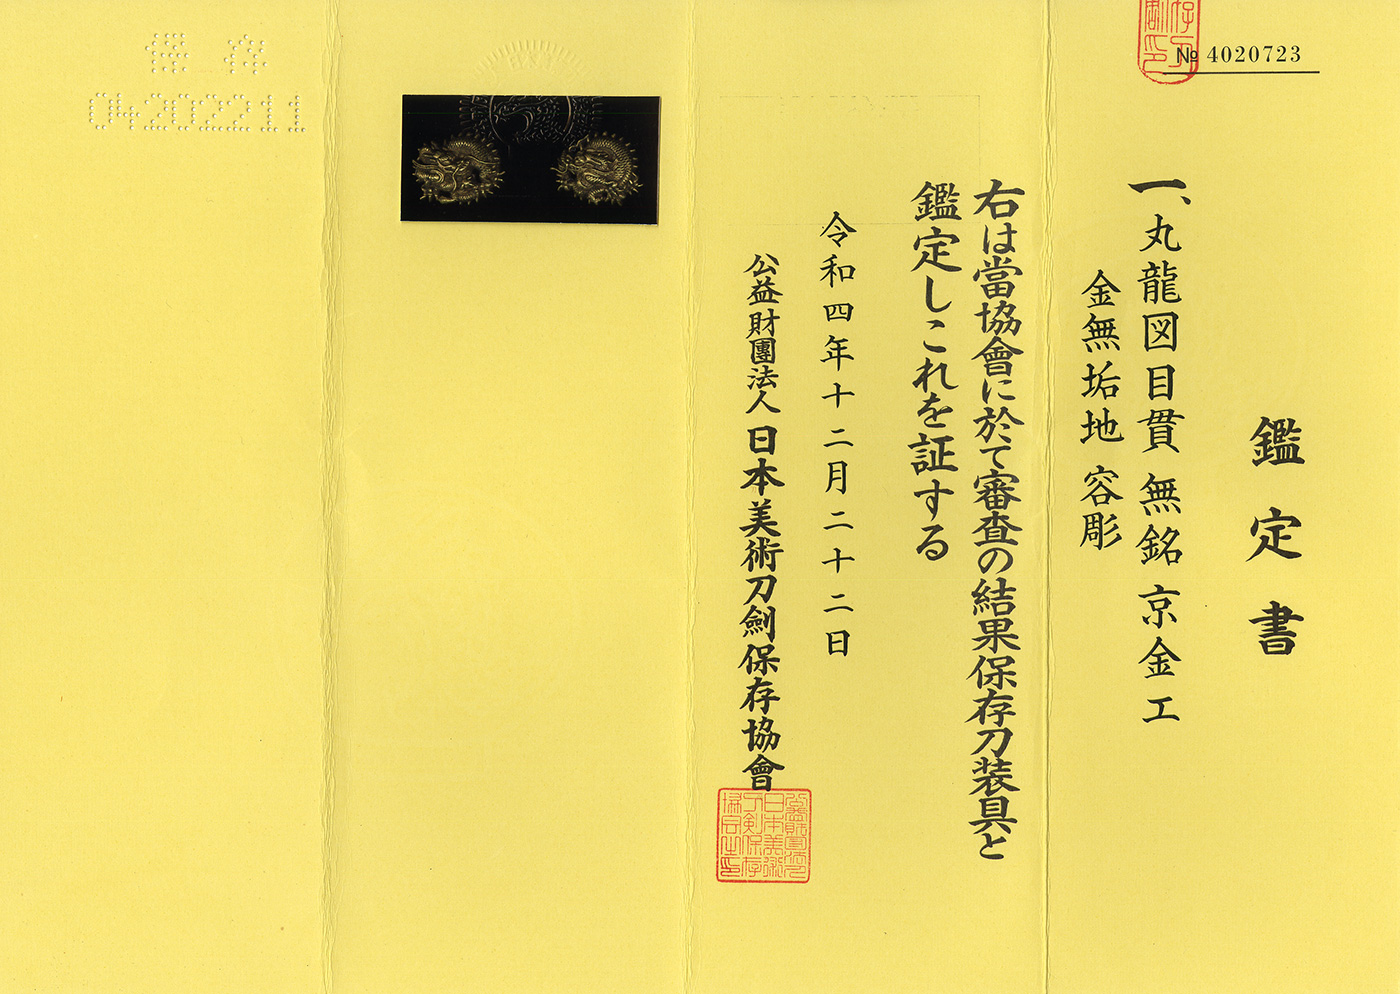 № 4020723
鑑定書
一、丸龍図目貫 無銘 京金工
金無垢地 容彫
右は當協會に於て審査の結果保存刀装具と
鑑定しこれを証する
令和四年十二月二十二日
公益財團法人日本美術刀劍保存協會
保存
04202211